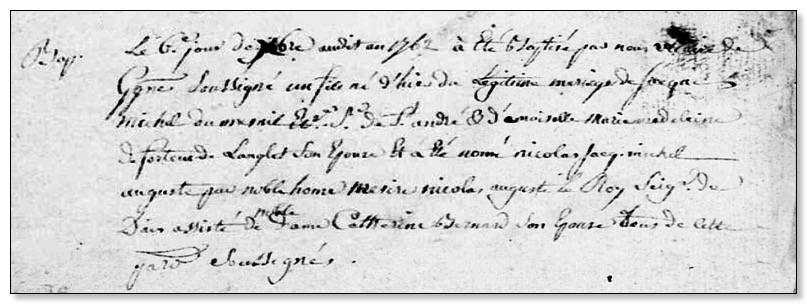 Bap.
Le 6.e jour de xbre audit an 1762 à été Baptisé par nous vicaire de
soussigné un fils né d'hier du Legitime mariage de jacque
michel dumesnil Ec.r S.r de S.t andré & d'amoiselle marie madeleine
de forteuc de Langlet son Epouse Et a été nomé nicolas jacq. michel
auguste par noble home mesire nicolas auguste Le Roy Seig.r de
assisté de noble dame Catherine Bernard son Epouse tous de cette
par.sse soussignés.